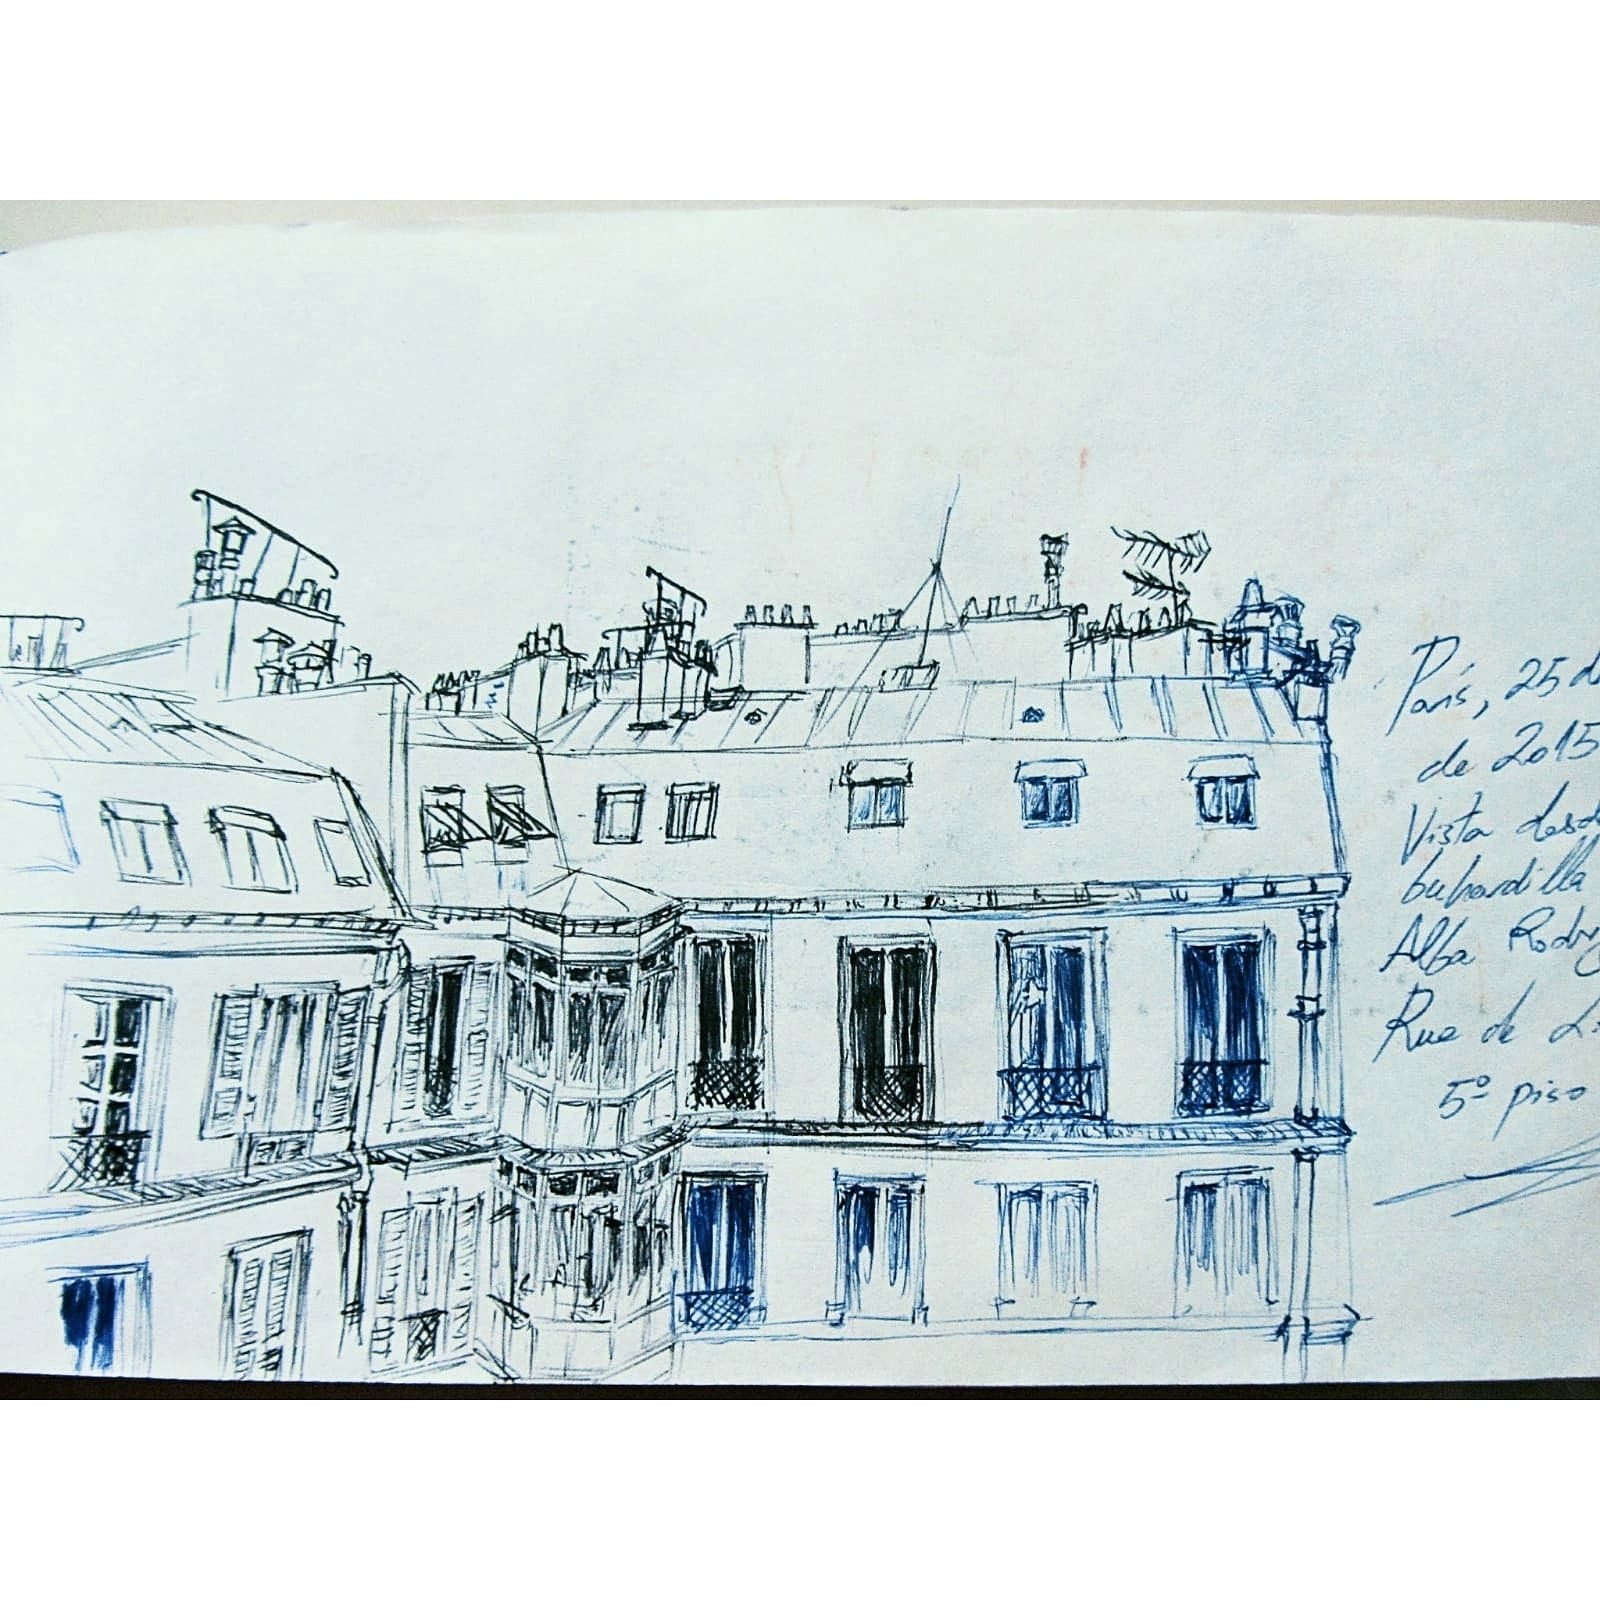 París, 25 d
de 2015
Vista desd
buhardilla
Alba Rodr
Rue de L
5º piso